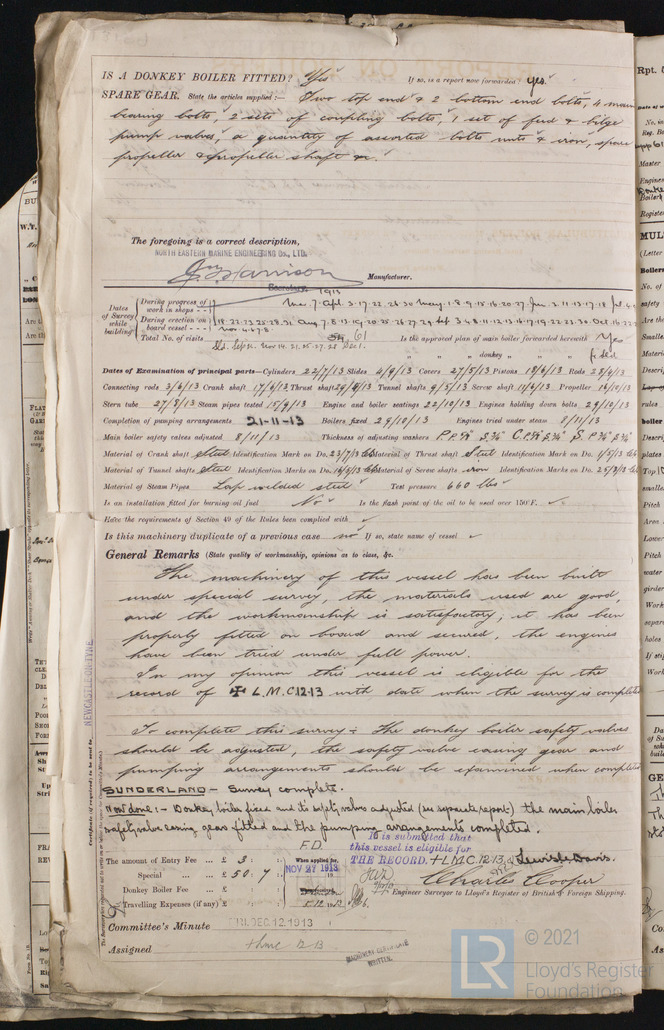 IS A DONKEY BOILER FITTED? Yes If so, is a report now forwarded? Yes
SPARE GEAR. State the articles supplied:— Two top end & 2 bottom end bolts, 4 main
bearing bolts, 2 sets of coupling bolts, 1 set of feed & bilge
pump valves, a quantity of assorted bolts nuts & iron, spare
propeller & propeller shaft &c.
The foregoing is a correct description,
NORTH EASTERN MARINE ENGINEERING Co., LTD.
Harrison Manufacturer.
Secretary.
Dates of Survey while building
During progress of work in shops -- 1913 Mar. 7. Apl. 3.17.22.28.30 May. 1.8.9.15.16.20.27. Jun. 2.11.13.17.18
During erection on board vessel --- Aug. 7.8.13.19.20.25.26.27.29 Sep. 3.4.8.11.12.13.16.17.19.22.23.30. Oct.
Nov. 4.6.7.8.
Total No. of visits 61 Is the approved plan of main boiler forwarded herewith Yes
Sld. Sep. 12. Nov. 14. 21. 25. 27. 28 Dec. 1. " " " donkey " " "
Dates of Examination of principal parts—Cylinders 22/7/13 Slides 4/9/13 Covers 27/5/13 Pistons 18/6/13 Rods 28/8/13
Connecting rods 3/6/13 Crank shaft 17/9/13 Thrust shaft 29/8/13 Tunnel shafts 9/5/13 Screw shaft 11/6/13 Propeller 16/10/13
Stern tube 27/8/13 Steam pipes tested 15/9/13 Engine and boiler seatings 22/10/13 Engines holding down bolts 29/10/13
Completion of pumping arrangements 21-11-13 Boilers fixed 29/10/13 Engines tried under steam 8/11/13
Main boiler safety valves adjusted 8/11/13 Thickness of adjusting washers
Material of Crank shaft Steel Identification Mark on Do. 23/7/13 Material of Thrust shaft Steel Identification Mark on Do. 1/5/13
Material of Tunnel shafts Steel Identification Marks on Do. 16/5/13 Material of Screw shafts iron Identification Marks on Do. 25/3/13
Material of Steam Pipes Lap welded steel Test pressure 660 lbs
Is an installation fitted for burning oil fuel No Is the flash point of the oil to be used over 150°F. ✓
Have the requirements of Section 49 of the Rules been complied with ✓
Is this machinery duplicate of a previous case no If so, state name of vessel ✓
General Remarks (State quality of workmanship, opinions as to class, &c.
The machinery of this vessel has been built
under special survey, the materials used are good,
and the workmanship is satisfactory; it has been
properly fitted on board and secured, the engines
have been tried under full power.
In my opinion this vessel is eligible for the
record of ✠ L.M.C. 12.13 with date when the survey is completed
To complete this survey:- The donkey boiler safety valves
should be adjusted, the safety valve easing gear and
pumping arrangements should be examined when completed
SUNDERLAND — Survey complete.
Now done:- Donkey boiler fixed and its safety valves adjusted (see separate report) the main boiler
safety valve easing gear fitted and the pumping arrangements completed.
F.D.
It is submitted that
this vessel is eligible for
THE RECORD. + L.M.C. 12.13. Lewis Davis.
The amount of Entry Fee ... £ 3 : When applied for,
Special ... £ 50 : 7 NOV 27 1913
Donkey Boiler Fee ... £
Travelling Expenses (if any) £ 5.12.13
Charles Cooper
Engineer Surveyor to Lloyd's Register of British & Foreign Shipping.
Committee's Minute FRI. DEC. 12. 1913
Assigned + LMC 12 13
MACHINERY CERTIFICATE
WRITTEN.
NEWCASTLE-ON-TYNE
LR © 2021
Lloyd's Register
Foundation